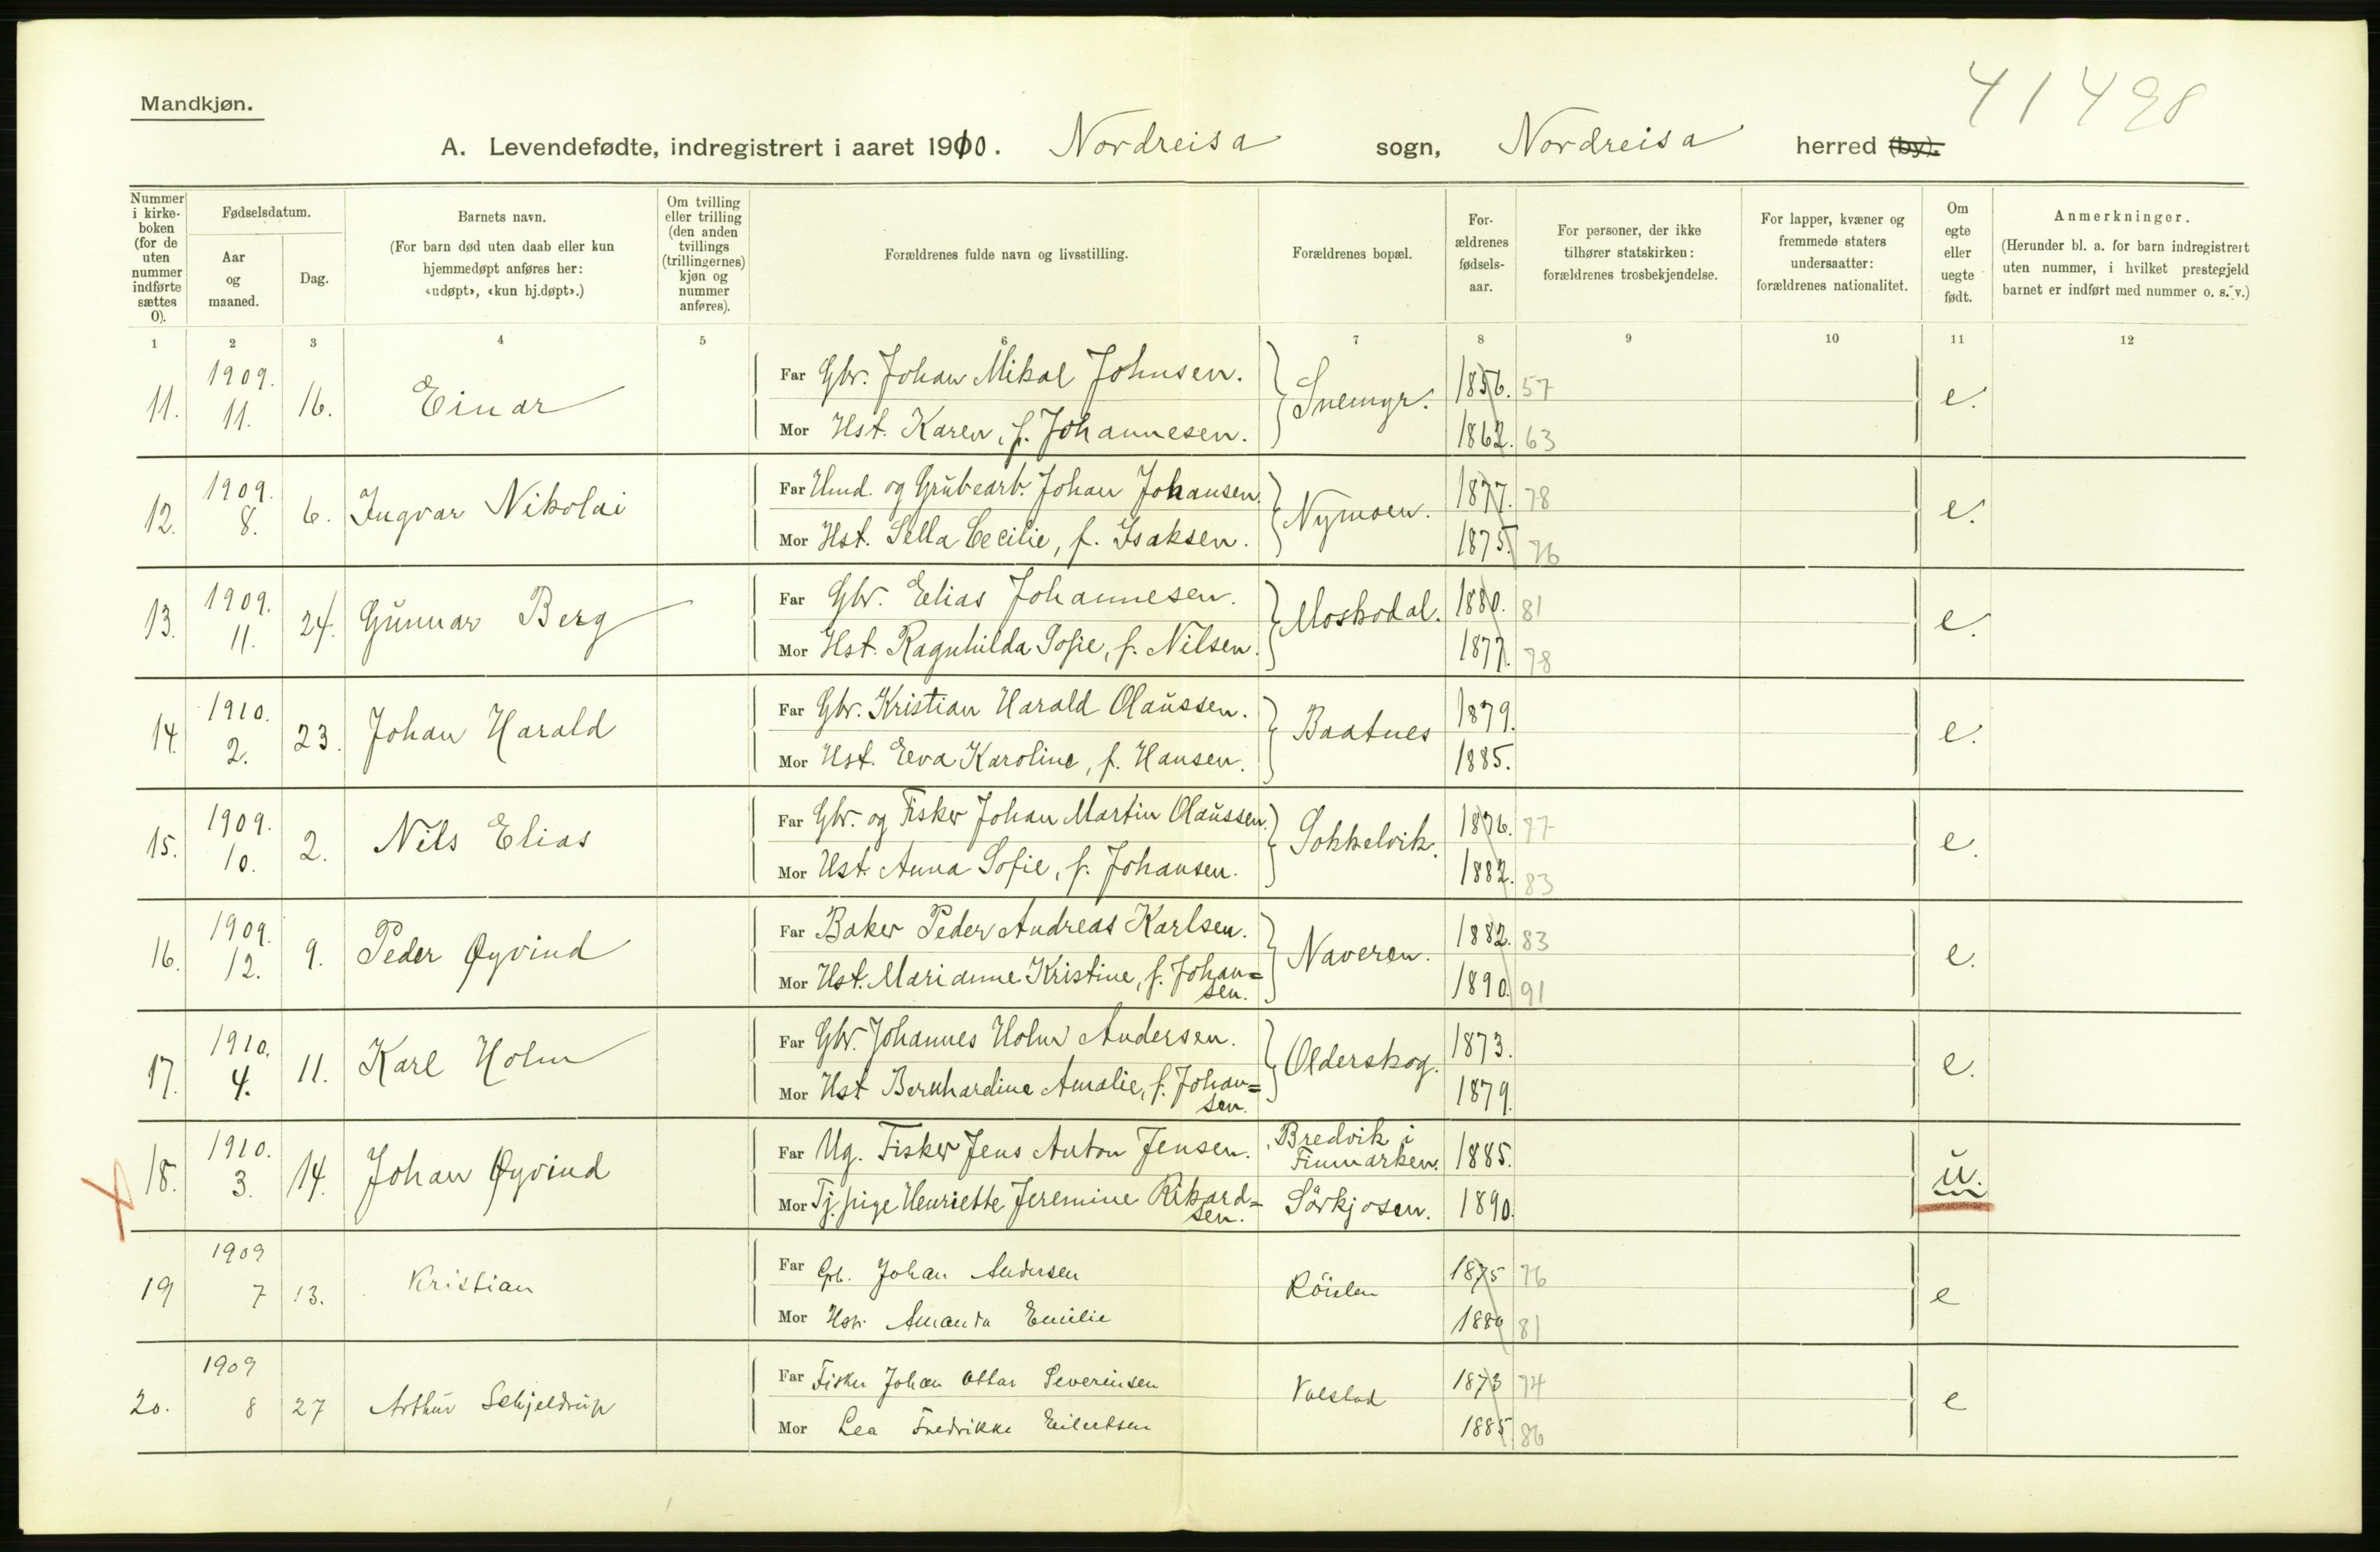 41498
Mandkjøn.
A. Levendefødte, indregistrert i aaret 1910. Nordreisa sogn, Nordreisa herred (by).
Nummer i kirkeboken (for de uten nummer indførte sættes 0).
Fødselsdatum.
Aar og maaned.
Dag.
Barnets navn.
(For barn død uten daab eller kun hjemmedøpt anføres her: «udøpt», «kun hj.døpt».)
Om tvilling eller trilling (den anden tvillings (trillingernes) kjøn og nummer anføres).
Forældrenes fulde navn og livsstilling.
Forældrenes bopæl.
For-ældrenes fødsels-aar.
For personer, der ikke tilhører statskirken: forældrenes trosbekjendelse.
For lapper, kvæner og fremmede staters undersaatter: forældrenes nationalitet.
Om egte eller uegte født.
Anmerkninger.
(Herunder bl. a. for barn indregistrert uten nummer, i hvilket prestegjeld barnet er indført med nummer o. s. v.)
1 2 3 4 5 6 7 8 9 10 11 12
11. 1909. 11. 16. Einar
Far Gbr. Johan Mikal Johnsen. Snemyr. 1856. 57 e.
Mor Hst. Karen, f. Johannesen. 1862. 63
12. 1909. 8. 6. Ingvar Nikolai
Far Umd. og Grubearb. Johan Johansen. Nymoen. 1877. 78 e.
Mor Hst. Sella Cecilie, f. Isaksen. 1875. 76
13. 1909. 11. 24. Gunnar Berg
Far Gbr. Elias Johannesen. Moskodal. 1880. 81 e.
Mor Hst. Ragnhilda Sofie, f. Nilsen. 1877. 78
14. 1910. 2. 23. Johan Harald
Far Gbr. Kristian Harald Olaussen. Baatnes 1879. e.
Mor Hst. Eeva Karoline, f. Hansen. 1885.
15. 1909. 10. 2. Nils Elias
Far Gbr. og Fisker Johan Martin Olaussen. Sokkelvik. 1876. 77 e.
Mor Hst. Anna Sofie, f. Johansen. 1882. 83
16. 1909. 12. 9. Peder Øyvind
Far Baker Peder Andreas Karlsen. Naveren. 1882. 83 e.
Mor Hst. Marianne Kristine, f. Johan=
sen. 1890. 91
17. 1910. 4. 11. Karl Holm
Far Gbr. Johannes Holm Andersen. Olderskog. 1873. e.
Mor Hst Bernhardine Amalie, f. Johan=
sen. 1879.
18. 1910. 3. 14. Johan Øyvind
Far Ug. Fisker Jens Anton Jensen. Bredvik i
Finmarken. 1885. u.
Mor Tj. pige Henriette Jeremine Rikard=
sen. Sörkjosen. 1890.
19 1909 7 13. Kristian
Far Gb. Johan Andersen Röielen 1875 76 e
Mor Hstr. Amanda Emilie 1880 81
20. 1909 8 27 Arthur Schjeldrup
Far Fisker Johan Ottar Severinsen 1873 74 e
Mor Lea Fredrikke Eilertsen 1885 86